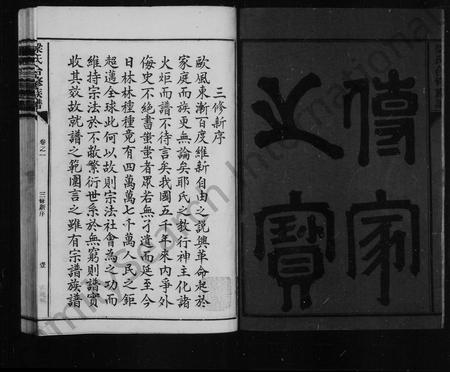 傳家
大寶
三修新序
歐風東漸百度維新自由之說興革命起於
家庭而族更無論矣耶氏之教行神主化諸
火炬而譜不待言矣我國五千年來內爭外
侮史不絕書蚩蚩者眾若無孑遺而延至今
日林林種種竟有四萬萬七千萬人民之鉅
超邁全球此何以故則宗法社會為之功而
維持宗法於不敝繁衍世系於無窮則譜實
收其效故就譜之範圍言之雖有宗譜族譜
梁氏合修族譜
卷之一
三修新序
壹